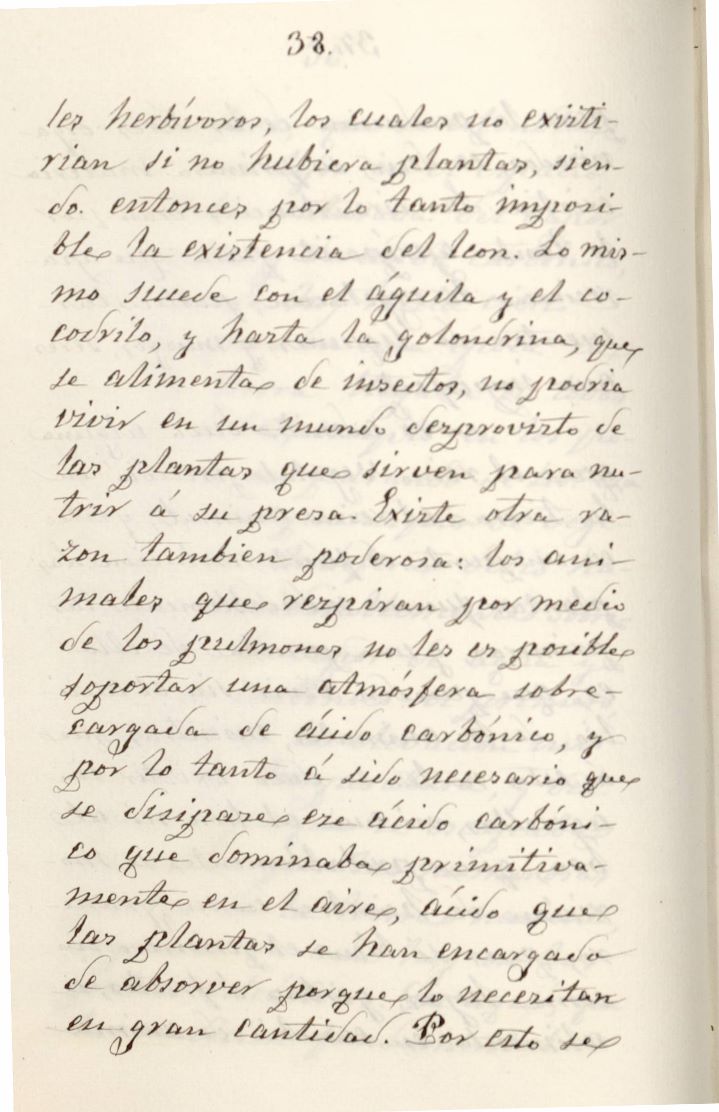 38.
les herbívoros, los cuales no existi-
rian si no hubiera plantas, sien-
do. entonces por lo tanto imposi-
ble la existencia del leon. Lo mis-
mo suede con el águila y el co-
codrilo, y hasta la golondrina, que
se alimenta de insectos, no podria
vivir en un mundo desprovisto de
las plantas que sirven para nu-
trir á su presa. Existe otra ra-
zon tambien poderosa: los ani-
males que respiran por medio
de los pulmones no les es posible
soportar una atmósfera sobre-
cargada de ácido carbónico, y
por lo tanto á sido necesario que
se disipase ese ácido carbóni-
co que dominaba primitiva-
mente en el aire, ácido que
las plantas se han encargado
de absorver porque lo necesitan
en gran cantidad. Por esto se